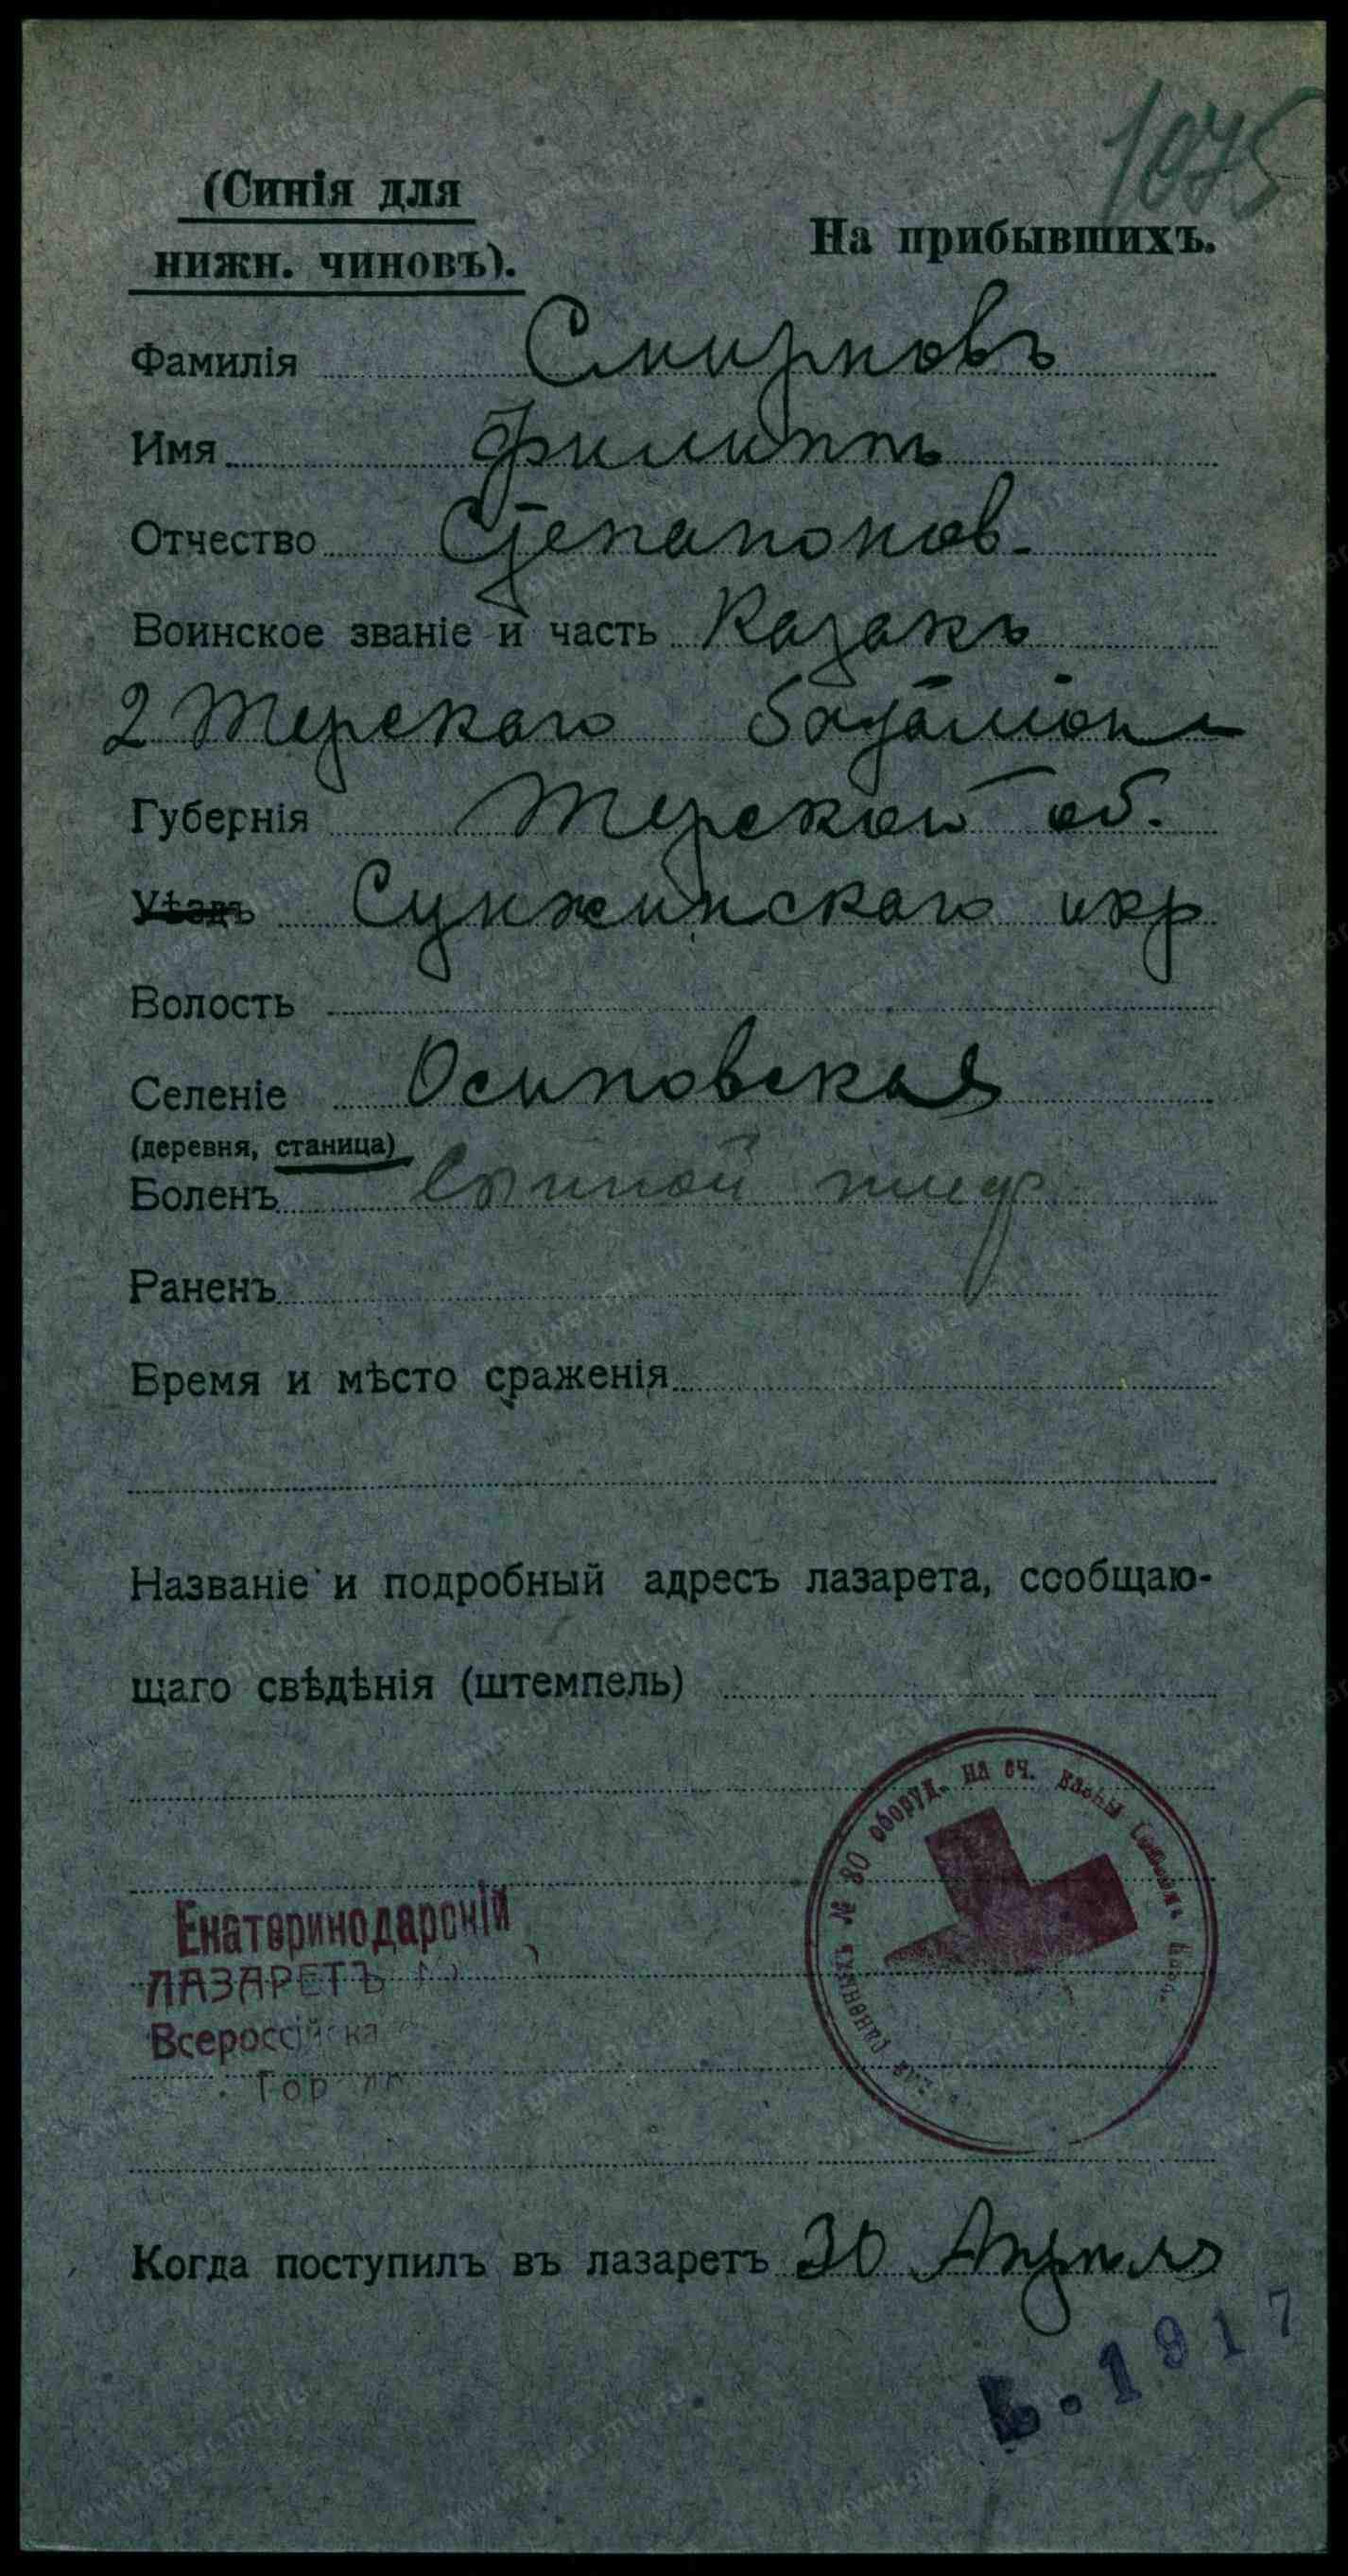 1075
(Синія для
нижн. чиновъ).
На прибывшихъ.
Фамилія Смирновъ
Имя Филиппъ
Отчество Степанонов.
Воинское званіе и часть Казакъ
2 Терскаго баталіона
Губернія Терской об.
Уѣздъ Сунженскаго окр
Волость
Селеніе Осиповская
(деревня, станица)
Боленъ Сыпной тиф
Раненъ
Время и мѣсто сраженія
Названіе и подробный адресъ лазарета, сообщаю-
щаго свѣдѣнія (штемпель)
№ 80 оборуд. на сч. казны
раненыхъ
Екатеринодарскій
ЛАЗАРЕТЪ
Всероссійска
Гор
Когда поступилъ въ лазаретъ 30 Апрѣля
1917